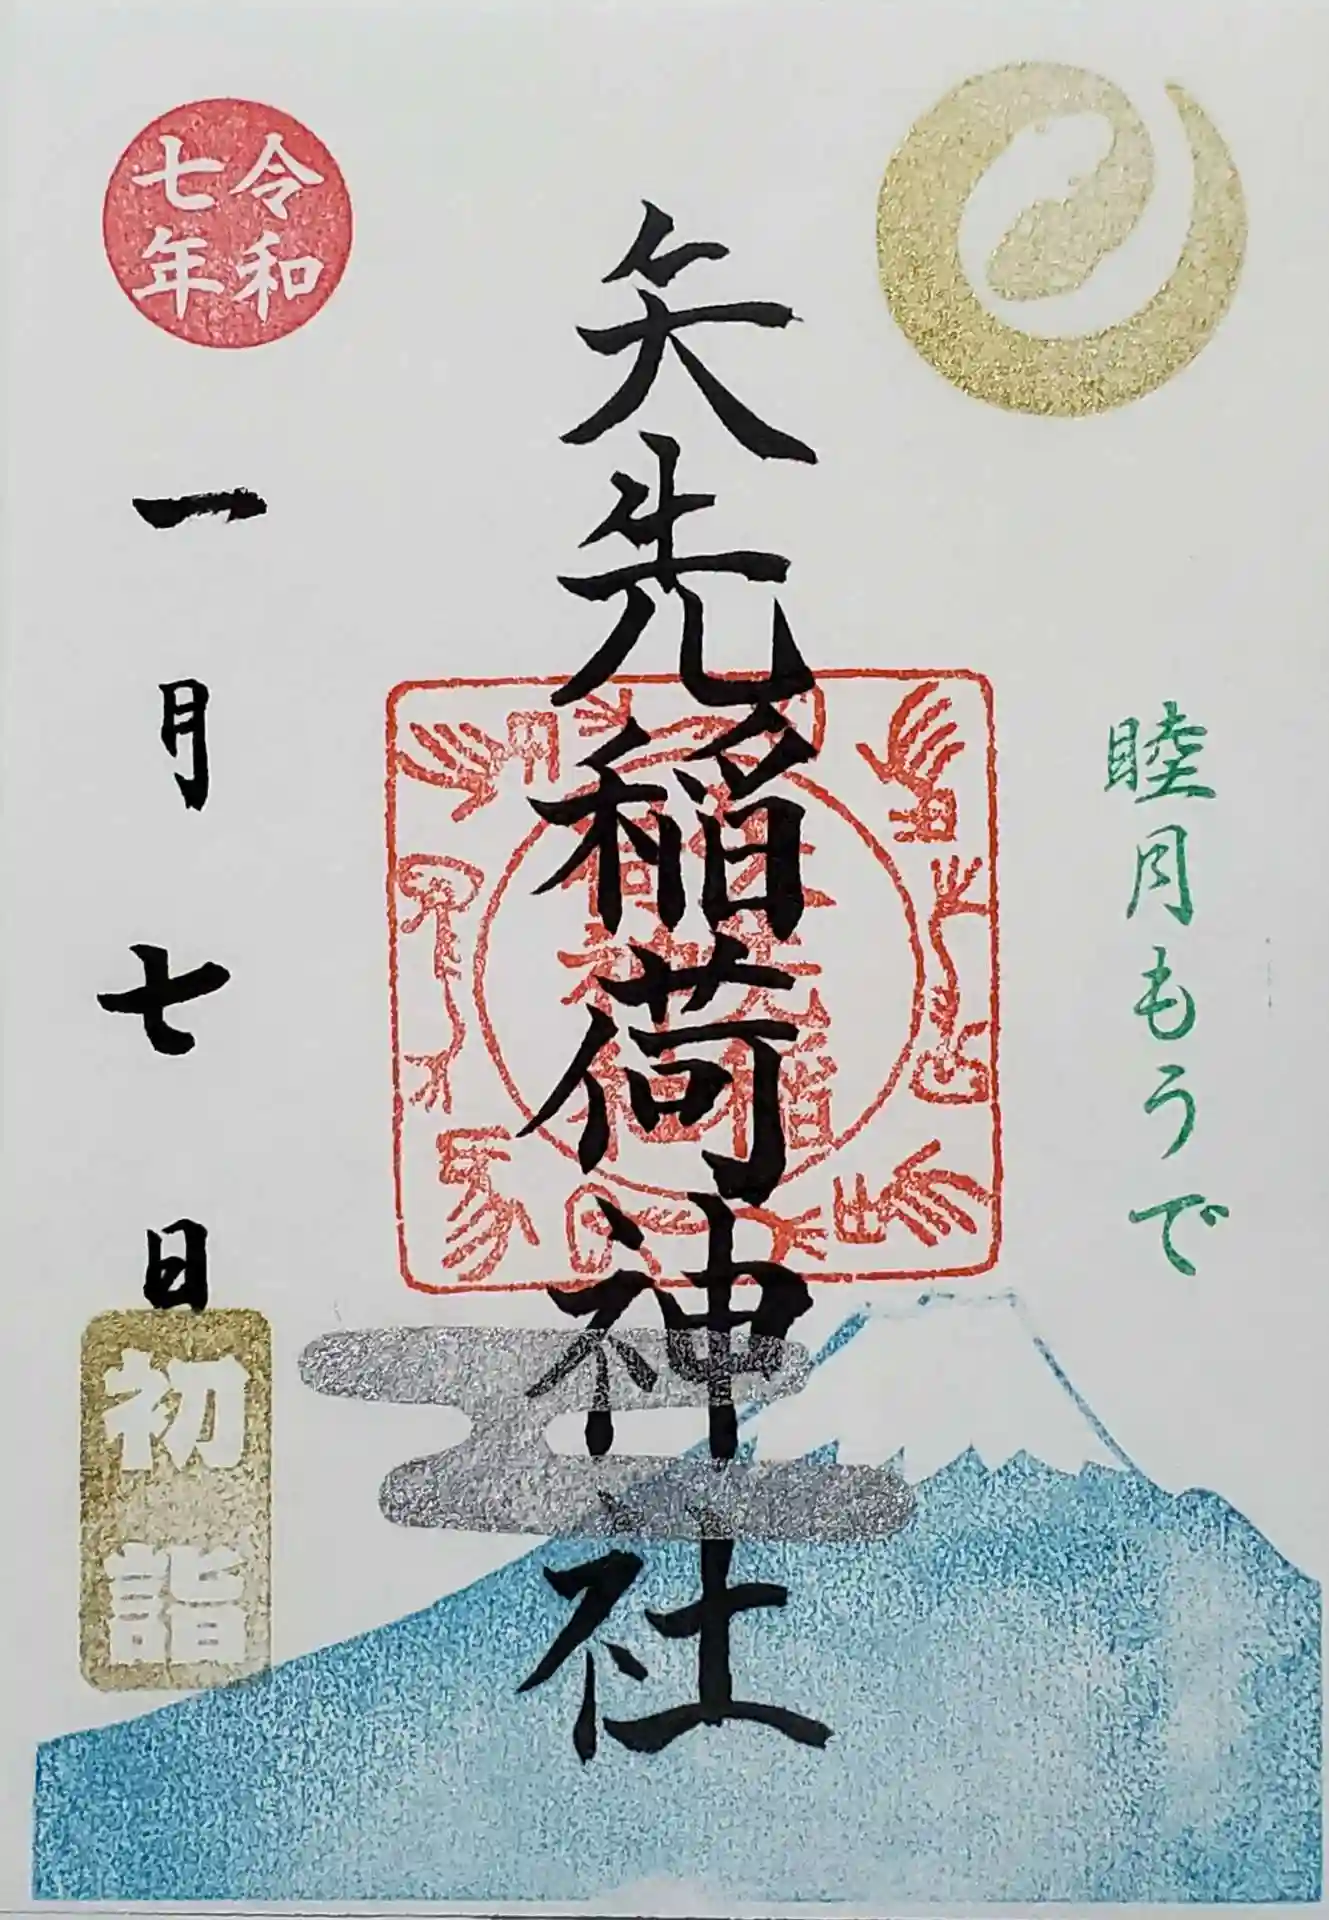 睦月もうで
矢先稲荷神社
令和
七年
一月七日
初詣